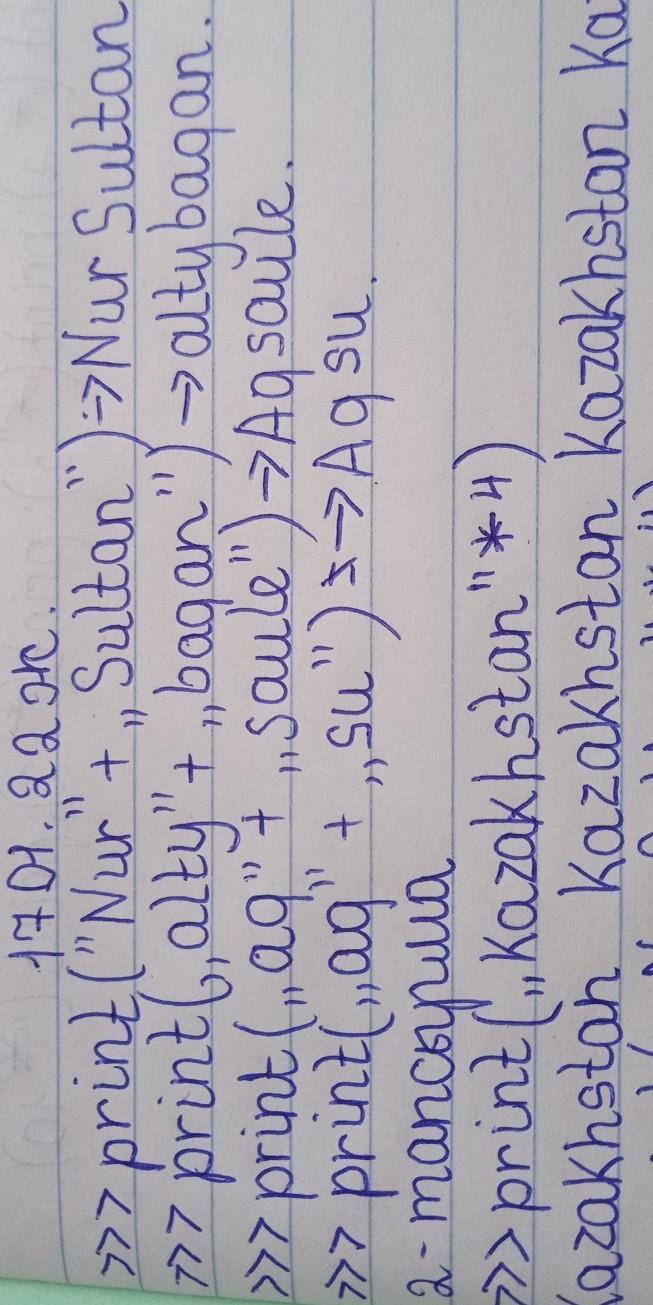 17 01. 22 ж.
>>> print("Nur" + „Sultan") → Nur Sultan
>>> print(„alty" + „baqan") → altybaqan.
>>> print(„aq" + „saule") → Aqsaule.
>>> print(„aq" + „su") → Aq su.
2 - тапсырма
>>> print(„Kazakhstan" * 4)
Kazakhstan Kazakhstan Kazakhstan Ka